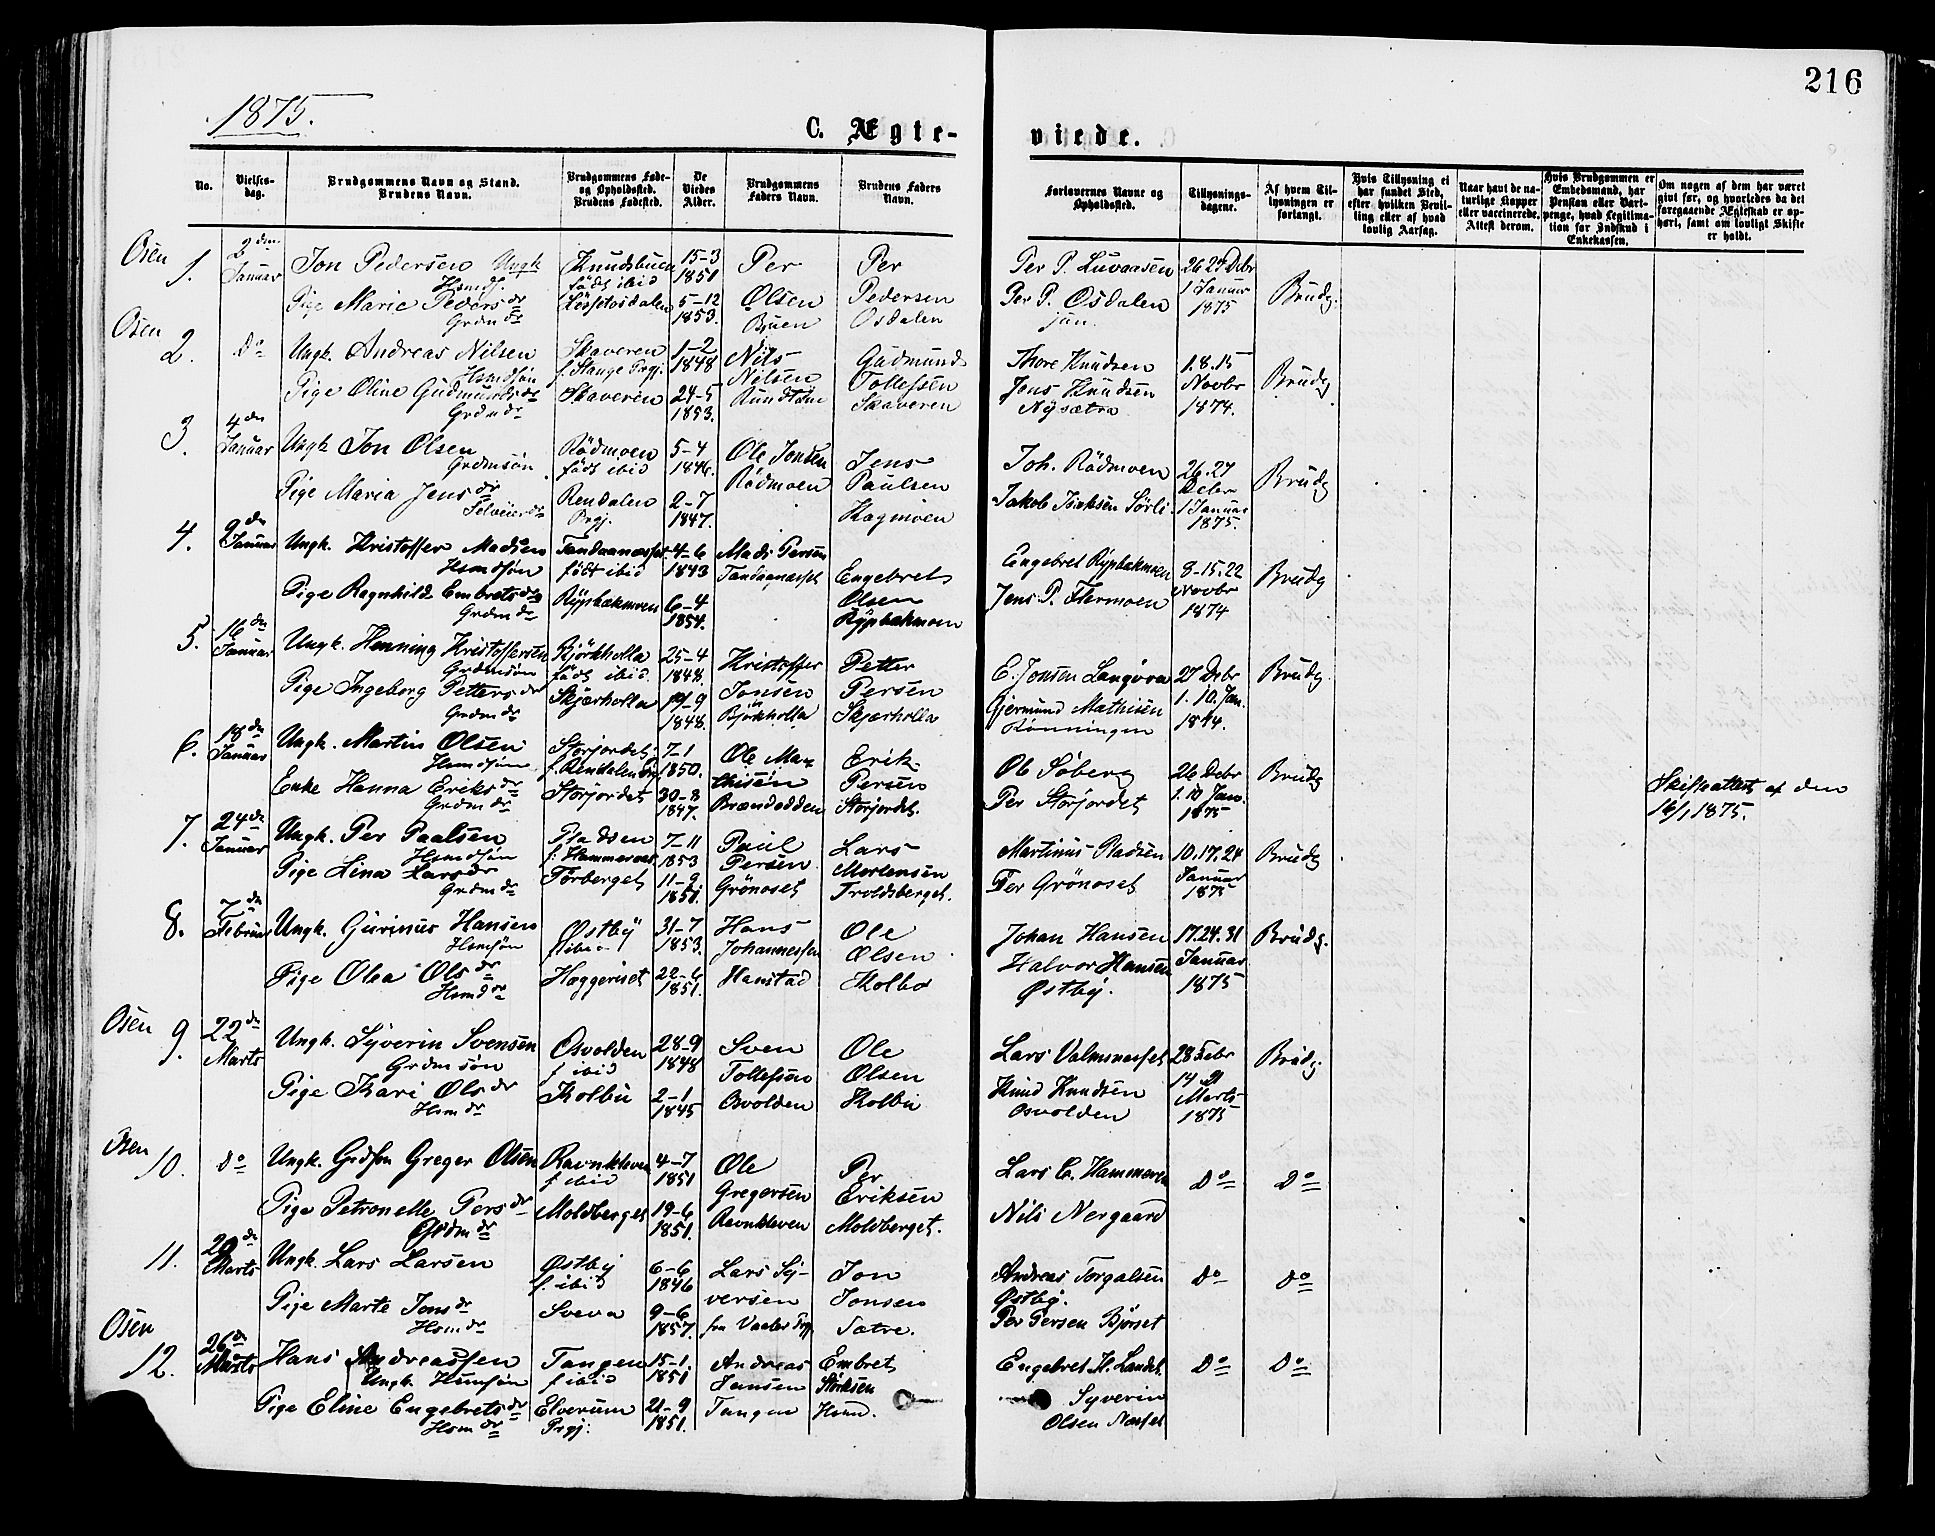 216
1875.
C. Ægte-
viede.
No.
Vielses-
dag.
Brudgommens Navn og Stand.
Brudens Navn.
Brudgommens Føde-
og Opholdssted.
Brudens Fødested.
De
Viedes
Alder.
Brudgommens
Faders Navn.
Brudens Faders
Navn.
Forlovernes Navne og
Opholdssted.
Tillysnings-
dagene.
Af hvem Til-
lysningen er
forlangt.
Hvis Tillysning ei
har fundet Sted,
efter hvilken Bevil-
ling eller af hvad
lovlig Aarsag.
Naar havt de na-
turlige Kopper
eller vaccinerede.
Attest derom.
Hvis Brudgommen er
Embedsmand, har
Pension eller Vart-
penge, hvad Legitima-
tion for Indskud i
Enkekassen.
Om nogen af dem har været
gift før, og hvorledes da det
foregaaende Ægteskab er op-
hørt, samt om lovligt Skifte
er holdt.
Osen
1.
2den
Januar
Jon Pedersen Ungk
Hsmds.
Pige Marie Peders dr
Grdm dr
Knudsbuen
født ibid
15-3
1851
5-12
1853.
Per
Olsen
Buen
Per
Pedersen
Osdalen
Per P. Luvaasen
Per P. Osdalen
jun.
26 27 Debr
1 Januar
1875
Brudg.
Osen
2.
Do
Ungk. Andreas Nilsen
Hsmdsøn
Pige Oline Gudmunds dr
Grdm dr
Skaveren
f. Stange Prgj.
Skaveren
1-2
1848
24-5
1853.
Nils
Nilsen
Rundtom
Gudmund
Tollefsen
Skaveren
Thore Knudsen
Jens Knudsen
Nysætra
1.8.15
Novbr
1874.
Brudg
3.
4den
Januar
Ungk Jon Olsen
Grdmsøn
Pige Maria Jens dr
Selveier dr
Rødmoen
født ibid
Rendalen
Prgj.
5-4
1846.
2-7
1847.
Ole Jonsen
Rødmoen
Jens
Paulsen
Hagmoen
Joh. Rødmoen
Jakob Isaksen Sørli
26.27
Debr
1 Januar
1875.
Brudg
4.
9de
Januar
Ungk. Kristoffer Madsen
Hsmdsøn
Pige Ragnhild Embrets dr
Grdm dr
Tandaanæsset
født ibid
Rypbakmoen
4-6
1843
6-4
1854.
Mads Persen
Tandaanæsset
Engebret
Olsen
Rypbakmoen
Engebret Rypbakmoen
Jens P. Flermoen
8-15.22
Novbr
1874
Brudg
5.
16de
Januar
Ungk. Henning Kristoffersen
Grdmsøn
Pige Ingeborg Petters dr
Grdm dr
Bjørkholla
født ibid.
Skjærholla
25-4
1848.
19-9
1848.
Kristoffer
Jonsen
Bjørkholla
Petter
Persen
Skjærholla
E. Jonsen Langøra
Gjermund Mathisen
Rønningen
27 Debr
1. 10. Jan.
1874.
Brudg.
6.
18de
Januar
Ungk. Martin Olsen
Hsmdsøn
Enke Hanna Eriks dr
Grdm dr
Storjordet
f. Rendalen Prgj
Storjordet
7-1
1850.
30-8
1847.
Ole Ma-
thisen
Brændodden
Erik
Persen
Storjordet.
Ole Søberg
Per Storjordet
26 Debr
1. 10 Jan.
1875
Brudg
Skifteattest af den
16/1 1875.
7.
24de
Januar
Ungk. Per Paalsen
Hsmdsøn
Pige Lina Lars dr
Grdm dr
Pladsen
f. Hammernes
Torberget
7-11
1853
11-9
1851.
Paul
Persen
Grønoset
Lars
Mortensen
Troldsberget.
Martinus Pladsen
Per Grønoset
10.17.24
Januar
1875
Brudg
8.
7de
Februar
Ungk. Gurinus Hansen
Hsmsøn
Pige Olea Ols dr
Hsmd dr
Østby
f. ibid
Haggeriset
31-7
1853.
22-6
1851.
Hans
Johannessen
Hanstad
Ole
Olsen
Kolbo
Johan Hansen
Halvor Hansen
Østby.
17.24.31
Januar
1875
Brudg.
Osen
9.
22de
Marts
Ungk. Syverin Svensen
Grdmsøn
Pige Kari Ols dr
Hsm dr
Osvolden
f ibid
Kolbu
28-9
1848
2-1
1845
Sven
Tollefsen
Osvolden
Ole
Olsen
Kolbu
Lars Valmsnesset
Knud Knudsen
Osvolden
28 Febr
14 21
Marts
1875
Brudg.
Osen
10.
Do
Ungk. Gregar Olsen
Pige Petronelle Pers dr
Grdm dr
Ravnkleven
f ibid
Moldberget
4-7
1851
19-6
1851.
Ole
Gregersen
Ravnkleven
Per
Eriksen
Moldberget.
Lars E. Hammeren
Nils Nergaard
Do
Do
11.
29de
Marts
Ungk. Lars Larsen
Pige Marte Jons dr
Hsm dr
Østby
f. ibid
Svea
6-6
1846
9-6
1857.
Lars Sy-
versen
fra Vaaler Prgj
Jon
Jonsen
Sætre.
Andreas Torgalsen
Østby.
Per Persen Bjørset
Do
Do
Osen
12.
26de
Marts
Hans Andreassen
Ungk. Husmsøn
Pige Eline Engebrets dr
Hsm dr
Tangen
f ibid
Elverum
Prgj.
15-1
1851
21-9
1851.
Andreas
Jansen
Tangen
Embret
Størksen
Engebret H. Landet
Syverin
Olsen Næsset
Do
Do